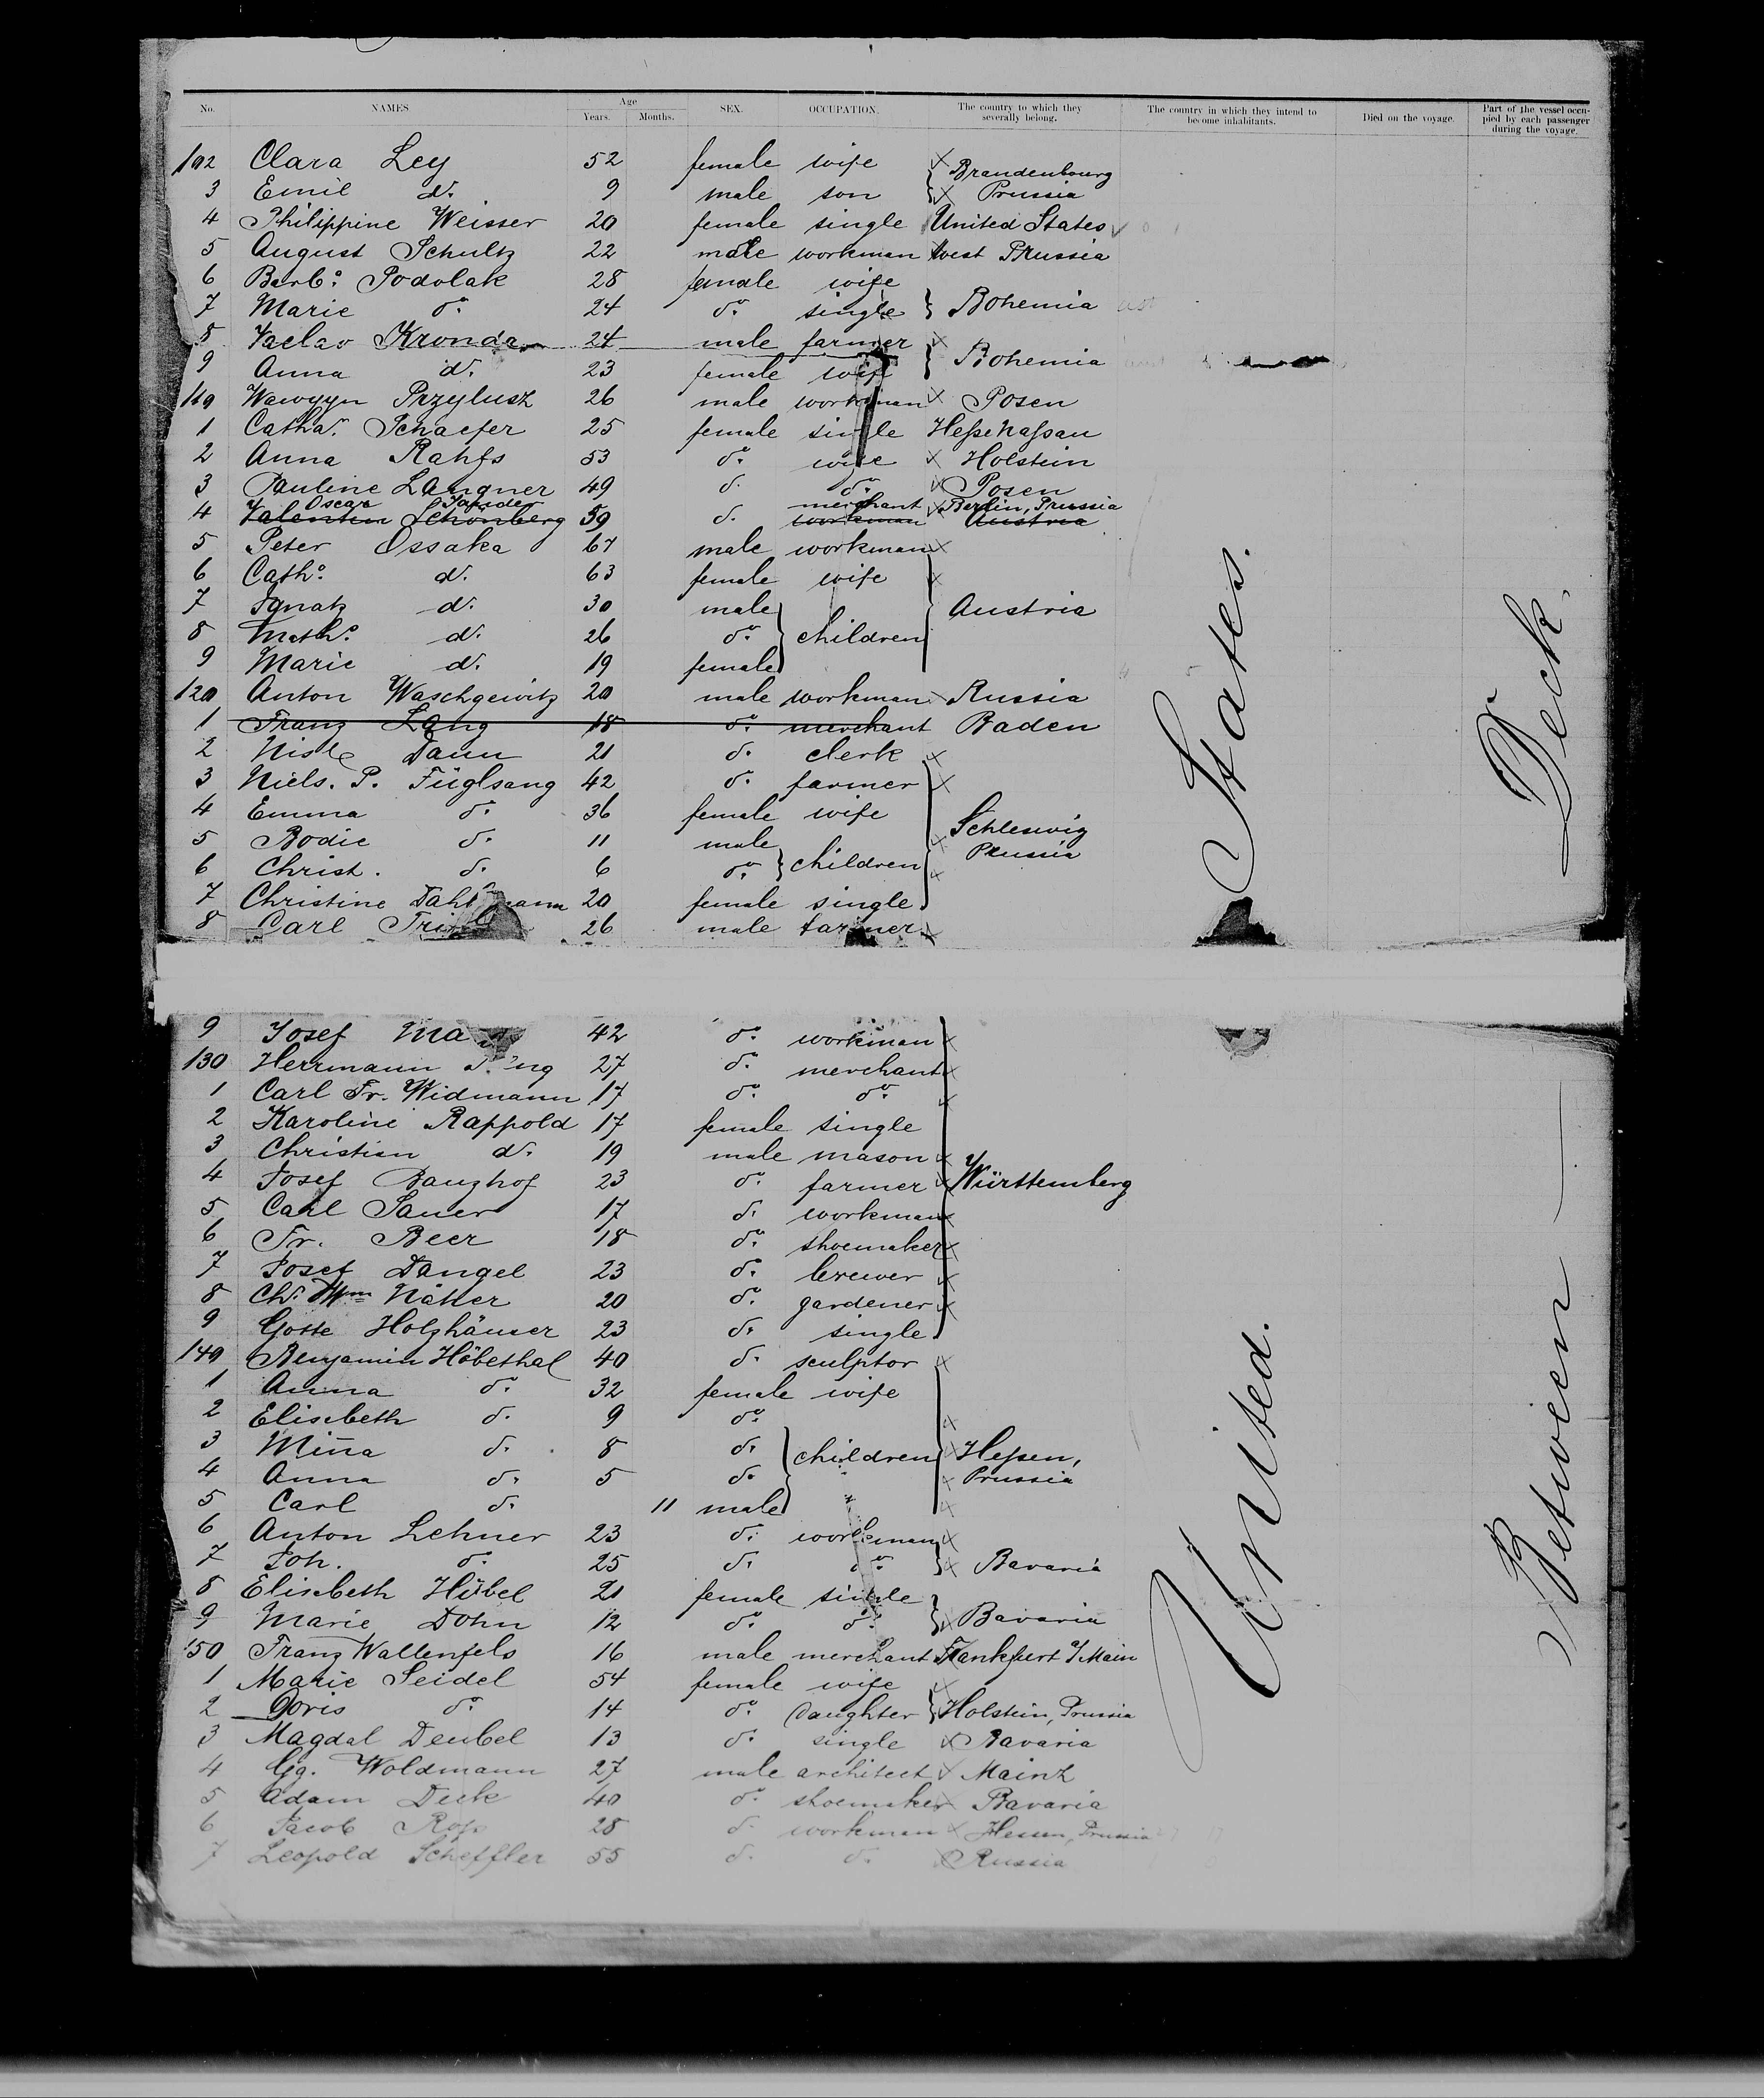 No. NAMES. Age Years. Months. SEX. OCCUPATION. The country to which they severally belong. The country in which they intend to become inhabitants. Died on the voyage. Part of the vessel occupied by each passenger during the voyage.
102 Clara Ley 52 female wife Brandenbourg
3 Emil do. 9 male son Prussia
4 Philippine Weisser 20 female single United States
5 August Schultz 22 male workman West Prussia
6 Barb. Podolak 28 female wife
7 Marie do. 24 do. single Bohemia
8 Vaclav Kronda 24 male farmer
9 Anna do. 23 female wife Bohemia
110 Wawzyn Przylusz 26 male workman Posen
1 Catha. Schaefer 25 female single Hessenassau
2 Anna Rahfs 53 do. wife Holstein
3 Pauline Langner 49 d. do. Posen
Oscar merchant Berlin, Prussia
4 Valentin Schönberg 59 d. workman Austria
5 Peter Ossaka 67 male workman
6 Cath. d. 63 female wife
7 Ignatz d. 30 male Austria
8 Math. d. 26 do. children
9 Marie d. 19 female
120 Anton Waschgewitz 20 male workman Russia
1 Franz Lang 18 do. merchant Baden
2 Daun 21 d. clerk
3 Niels. P. Füglsang 42 do. farmer
4 Emma do. 36 female wife Schleswig
5 Bodie d. 11 male Prussia
6 Christ. d. 6 do. children
7 Christine 20 female single
8 Carl 26 male farmer
9 Josef 42 do. workman
130 Herrmann 27 d. merchant
1 Carl Fr. Widmann 17 do. do.
2 Karoline Rappold 17 female single
3 Christian d. 19 male mason
4 Josef Banzhof 23 do. farmer Württemberg
5 Carl Sauer 17 d. workman
6 Fr. Beer 18 do. shoemaker
7 Josef Dangel 23 do. brewer
8 Ch. Wm Näher 20 do. gardener
9 Gotte Holzhäuser 23 d. single
140 Benjamin Höbethal 40 d. sculptor
1 Anna do. 32 female wife
2 Elisabeth d. 9 do.
3 Mina d. 8 d. children Hessen,
4 Anna d. 5 do. Prussia
5 Carl d. 11 male
6 Anton Lehner 23 d. workman
7 Joh. do. 25 d. do. Bavaria
8 Elisabeth Hübel 21 female single
9 Marie Dohn 12 do. do. Bavaria
150 Franz Wallenfels 16 male merchant Frankfurt a/Main
1 Marie Seidel 54 female wife
2 Doris do. 14 do. daughter Holstein, Prussia
3 Magdal Deubel 13 d. single Bavaria
4 Gg. Woldmann 27 male architect Mainz
5 Adam Deck 40 do. shoemaker Bavaria
6 Jacob 28 d. workman Hessen, Prussia
7 Leopold Scheffler 55 d. d. Russia
United States.
Between Deck.